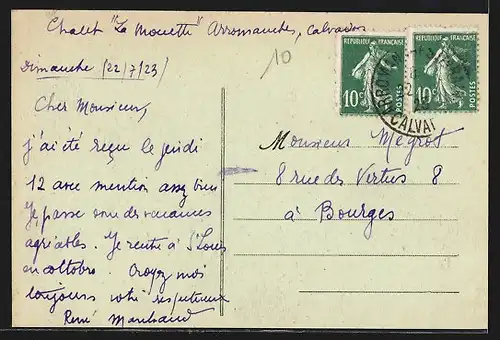 Chalet "La Mouette" Arromanches, Calvados
Dimanche (22/7/23)
10
Cher Monsieur,
j'ai été reçu le jeudi
12 avec mention assez bien
Je passe vacances
agréables. Je rentre à St Louis
en octobre. Croyez moi
toujours votre respectueux
René Marchand
Monsieur Mégrot
8 rue des Vertus 8
à Bourges
REPUBLIQUE FRANÇAISE
10c
POSTES
REPUBLIQUE FRANÇAISE
10c
CALVA